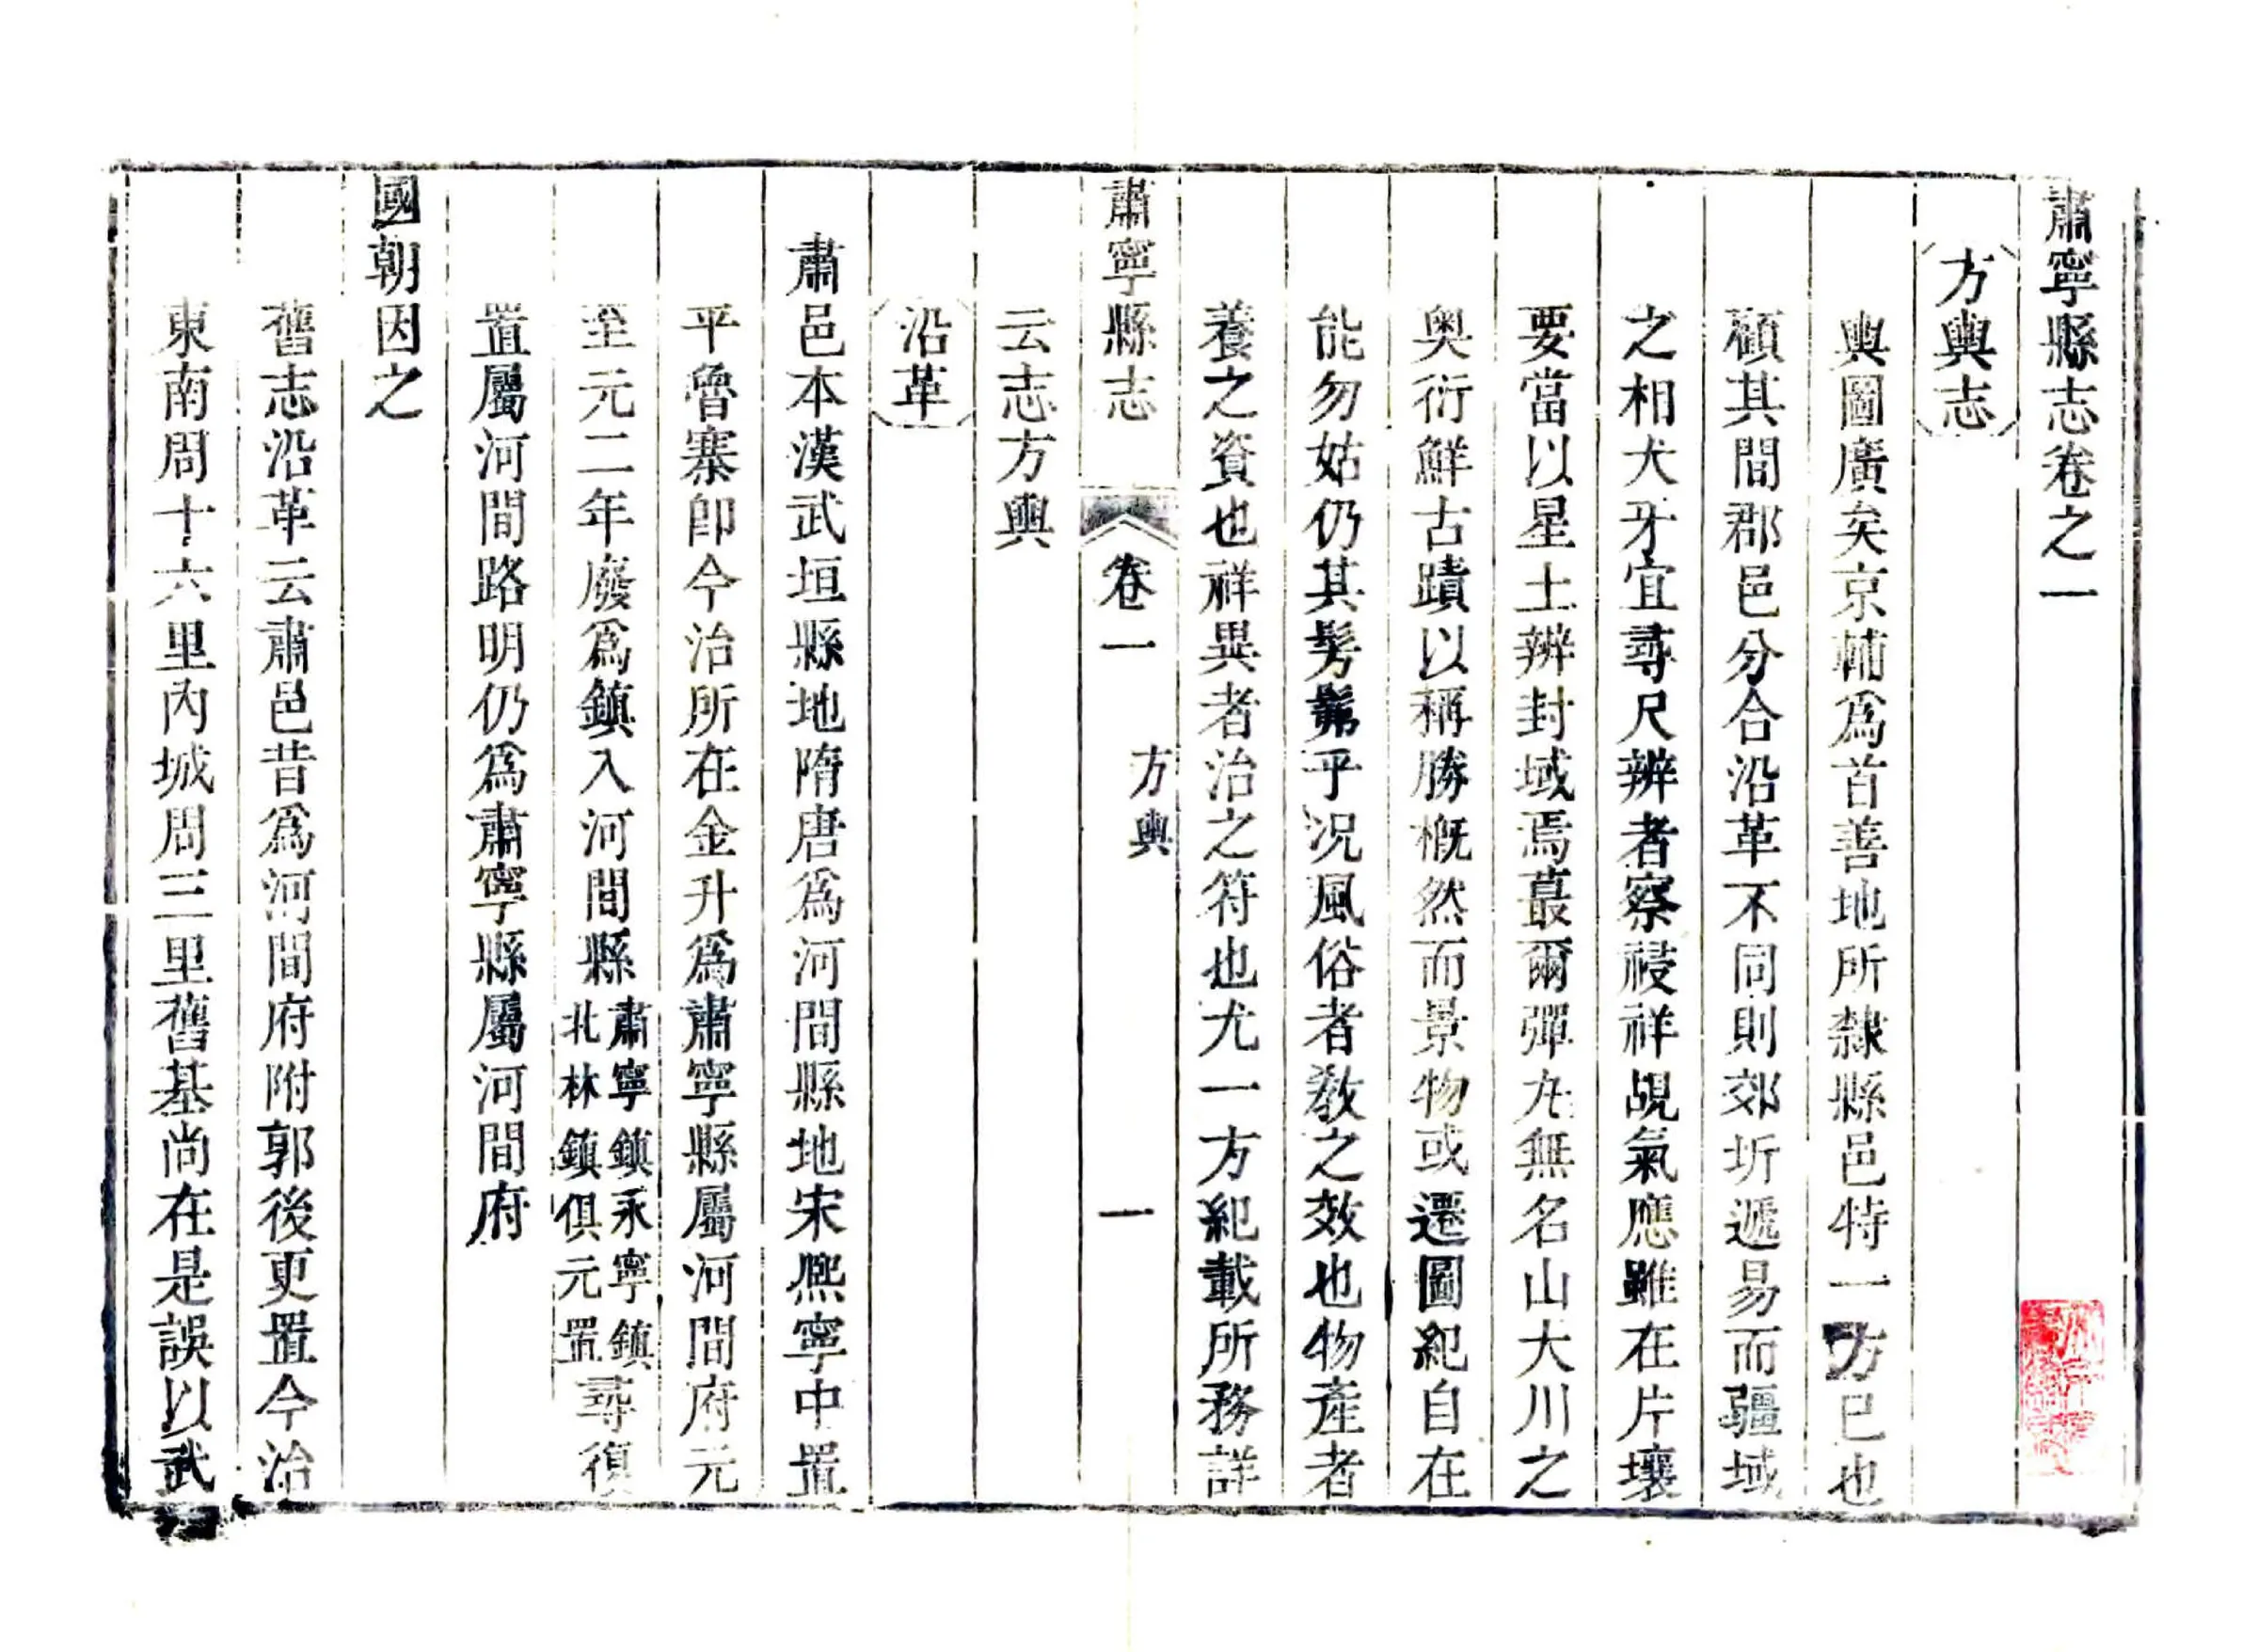 肅寧縣志卷之一
方輿志
輿圖廣矣京輔爲首善地所隸縣邑特一方已也
顧其間郡邑分合沿革不同則郊圻遞易而疆域
之相犬牙宜尋尺辨者察祲祥覘氣應雖在片壤
要當以星土辨封域焉蕞爾彈丸無名山大川之
奥衍鮮古蹟以稱勝槪然而景物或遷圖紀自在
能勿姑仍其髣髴乎况風俗者敎之效也物產者
養之資也祥異者治之符也尤一方紀載所務詳
肅寧縣志
卷一
方輿
一
云志方輿
沿革
肅邑本漢武垣縣地隋唐爲河間縣地宋熙寧中置
平魯寨卽今治所在金升爲肅寧縣屬河間府元
至元二年廢爲鎮入河間縣肅寧鎮永寧鎮北林鎮俱元置尋復
置屬河間路明仍爲肅寧縣屬河間府
國朝因之
舊志沿革云肅邑昔爲河間府附郭後更置今治
東南周十六里內城周三里舊基尚在是誤以武